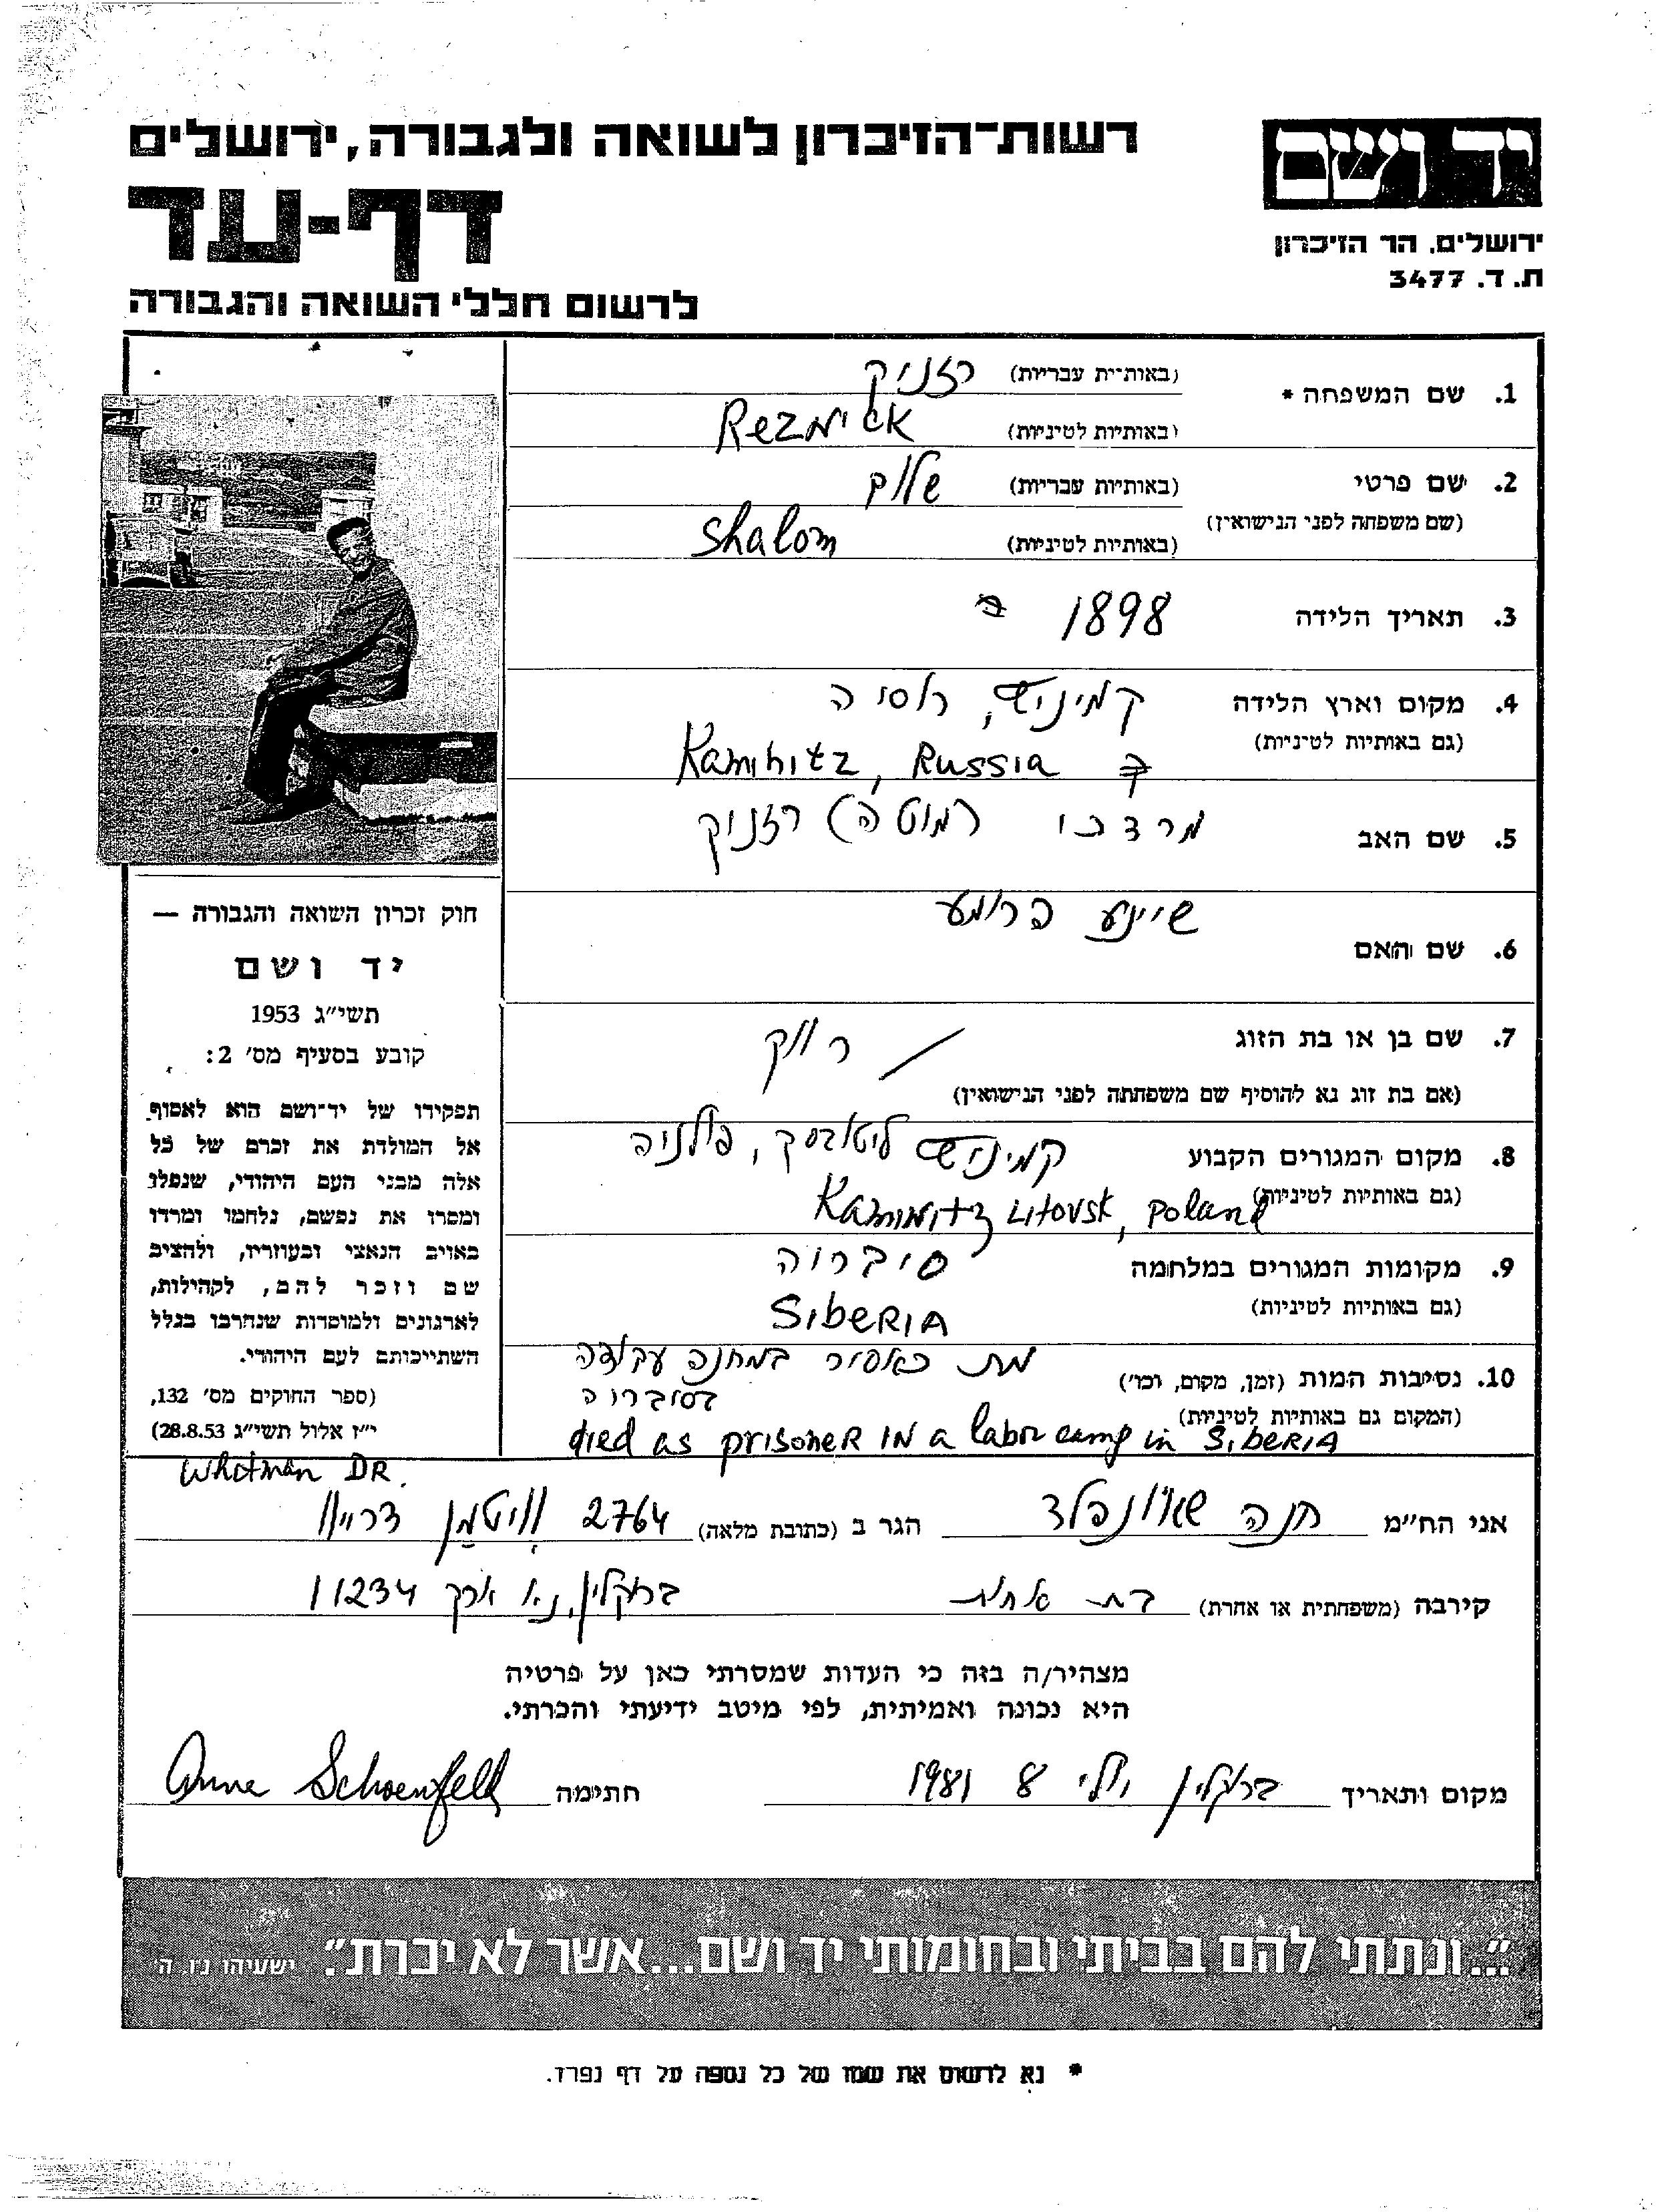 רשות־הזיכרון לשואה ולגבורה, ירושלים
דף-עד
לרשום חללי השואה והגבורה
יד ושם
ירושלים, הר הזיכרון
ת. ד. 3477
1. שם המשפחה * (באותיות עבריות) רזניק
(באותיות לטיניות) Reznick
2. שם פרטי (באותיות עבריות) שלום
(שם משפחה לפני הנישואין)
(באותיות לטיניות) Shalom
3. תאריך הלידה 1898
4. מקום וארץ הלידה קמיניץ, רוסיה
(גם באותיות לטיניות)
Kaminitz, Russia
5. שם האב מרדכי (מוטה) רזניק
6. שם האם שיינע פרומע
7. שם בן או בת הזוג רווק
(אם בת זוג נא להוסיף שם משפחתה לפני הנישואין)
8. מקום המגורים הקבוע קמיניץ ליטובסק, פולניה
(גם באותיות לטיניות) Kaminitz Litovsk, Poland
9. מקומות המגורים במלחמה סיבריה
(גם באותיות לטיניות) SibeRIA
10. נסיבות המות (זמן, מקום, וכו') מת כאסיר במחנה עבודה
בסיבריה
(המקום גם באותיות לטיניות)
died as prisoneR IN a labor camp in SibeRIA
חוק זכרון השואה והגבורה —
יד ושם
תשי״ג 1953
קובע בסעיף מס׳ 2:
תפקידו של יד־ושם הוא לאסוף
אל המולדת את זכרם של כל
אלה מבני העם היהודי, שנפלו
ומסרו את נפשם, נלחמו ומרדו
באויב הנאצי ובעוזריו, ולהציב
שם וזכר להם, לקהילות,
לארגונים ולמוסדות שנחרבו בגלל
השתייכותם לעם היהודי.
(ספר החוקים מס׳ 132,
י״ז אלול תשי״ג 28.8.53)
Whitman DR.
אני הח״מ חנה שאונפלד הגר ב (כתובת מלאה) 2764 וויטמן דרייוו
קירבה (משפחתית או אחרת) בת אחות ברוקלין, נא יארק 11234
מצהיר/ה בזה כי העדות שמסרתי כאן על פרטיה
היא נכונה ואמיתית, לפי מיטב ידיעתי והכרתי.
מקום ותאריך ברוקלין יולי 8 1981 חתימה Anne Schoenfeld
"...ונתתי להם בביתי ובחומותי יד ושם...אשר לא יכרת". ישעיהו נ״ו, ה׳
* נא לרשום את שמו של כל נספה על דף נפרד.